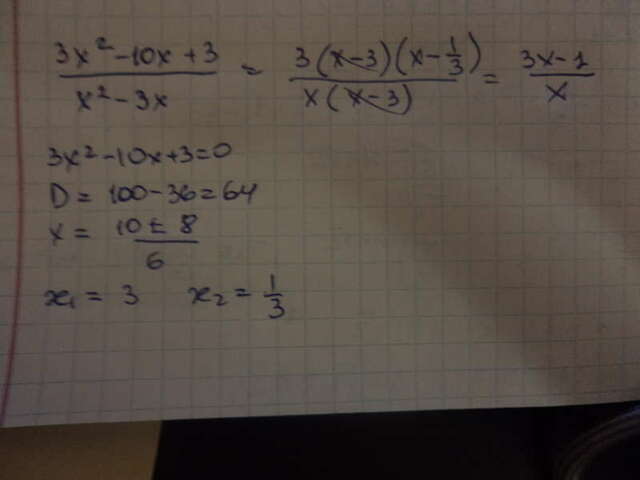 (3x² - 10x + 3)/(x² - 3x) = 3(x-3)(x - 1/3)/x(x-3) = (3x-1)/x
3x² - 10x + 3 = 0
D = 100 - 36 = 64
x = (10 ± 8)/6
x₁ = 3 x₂ = 1/3